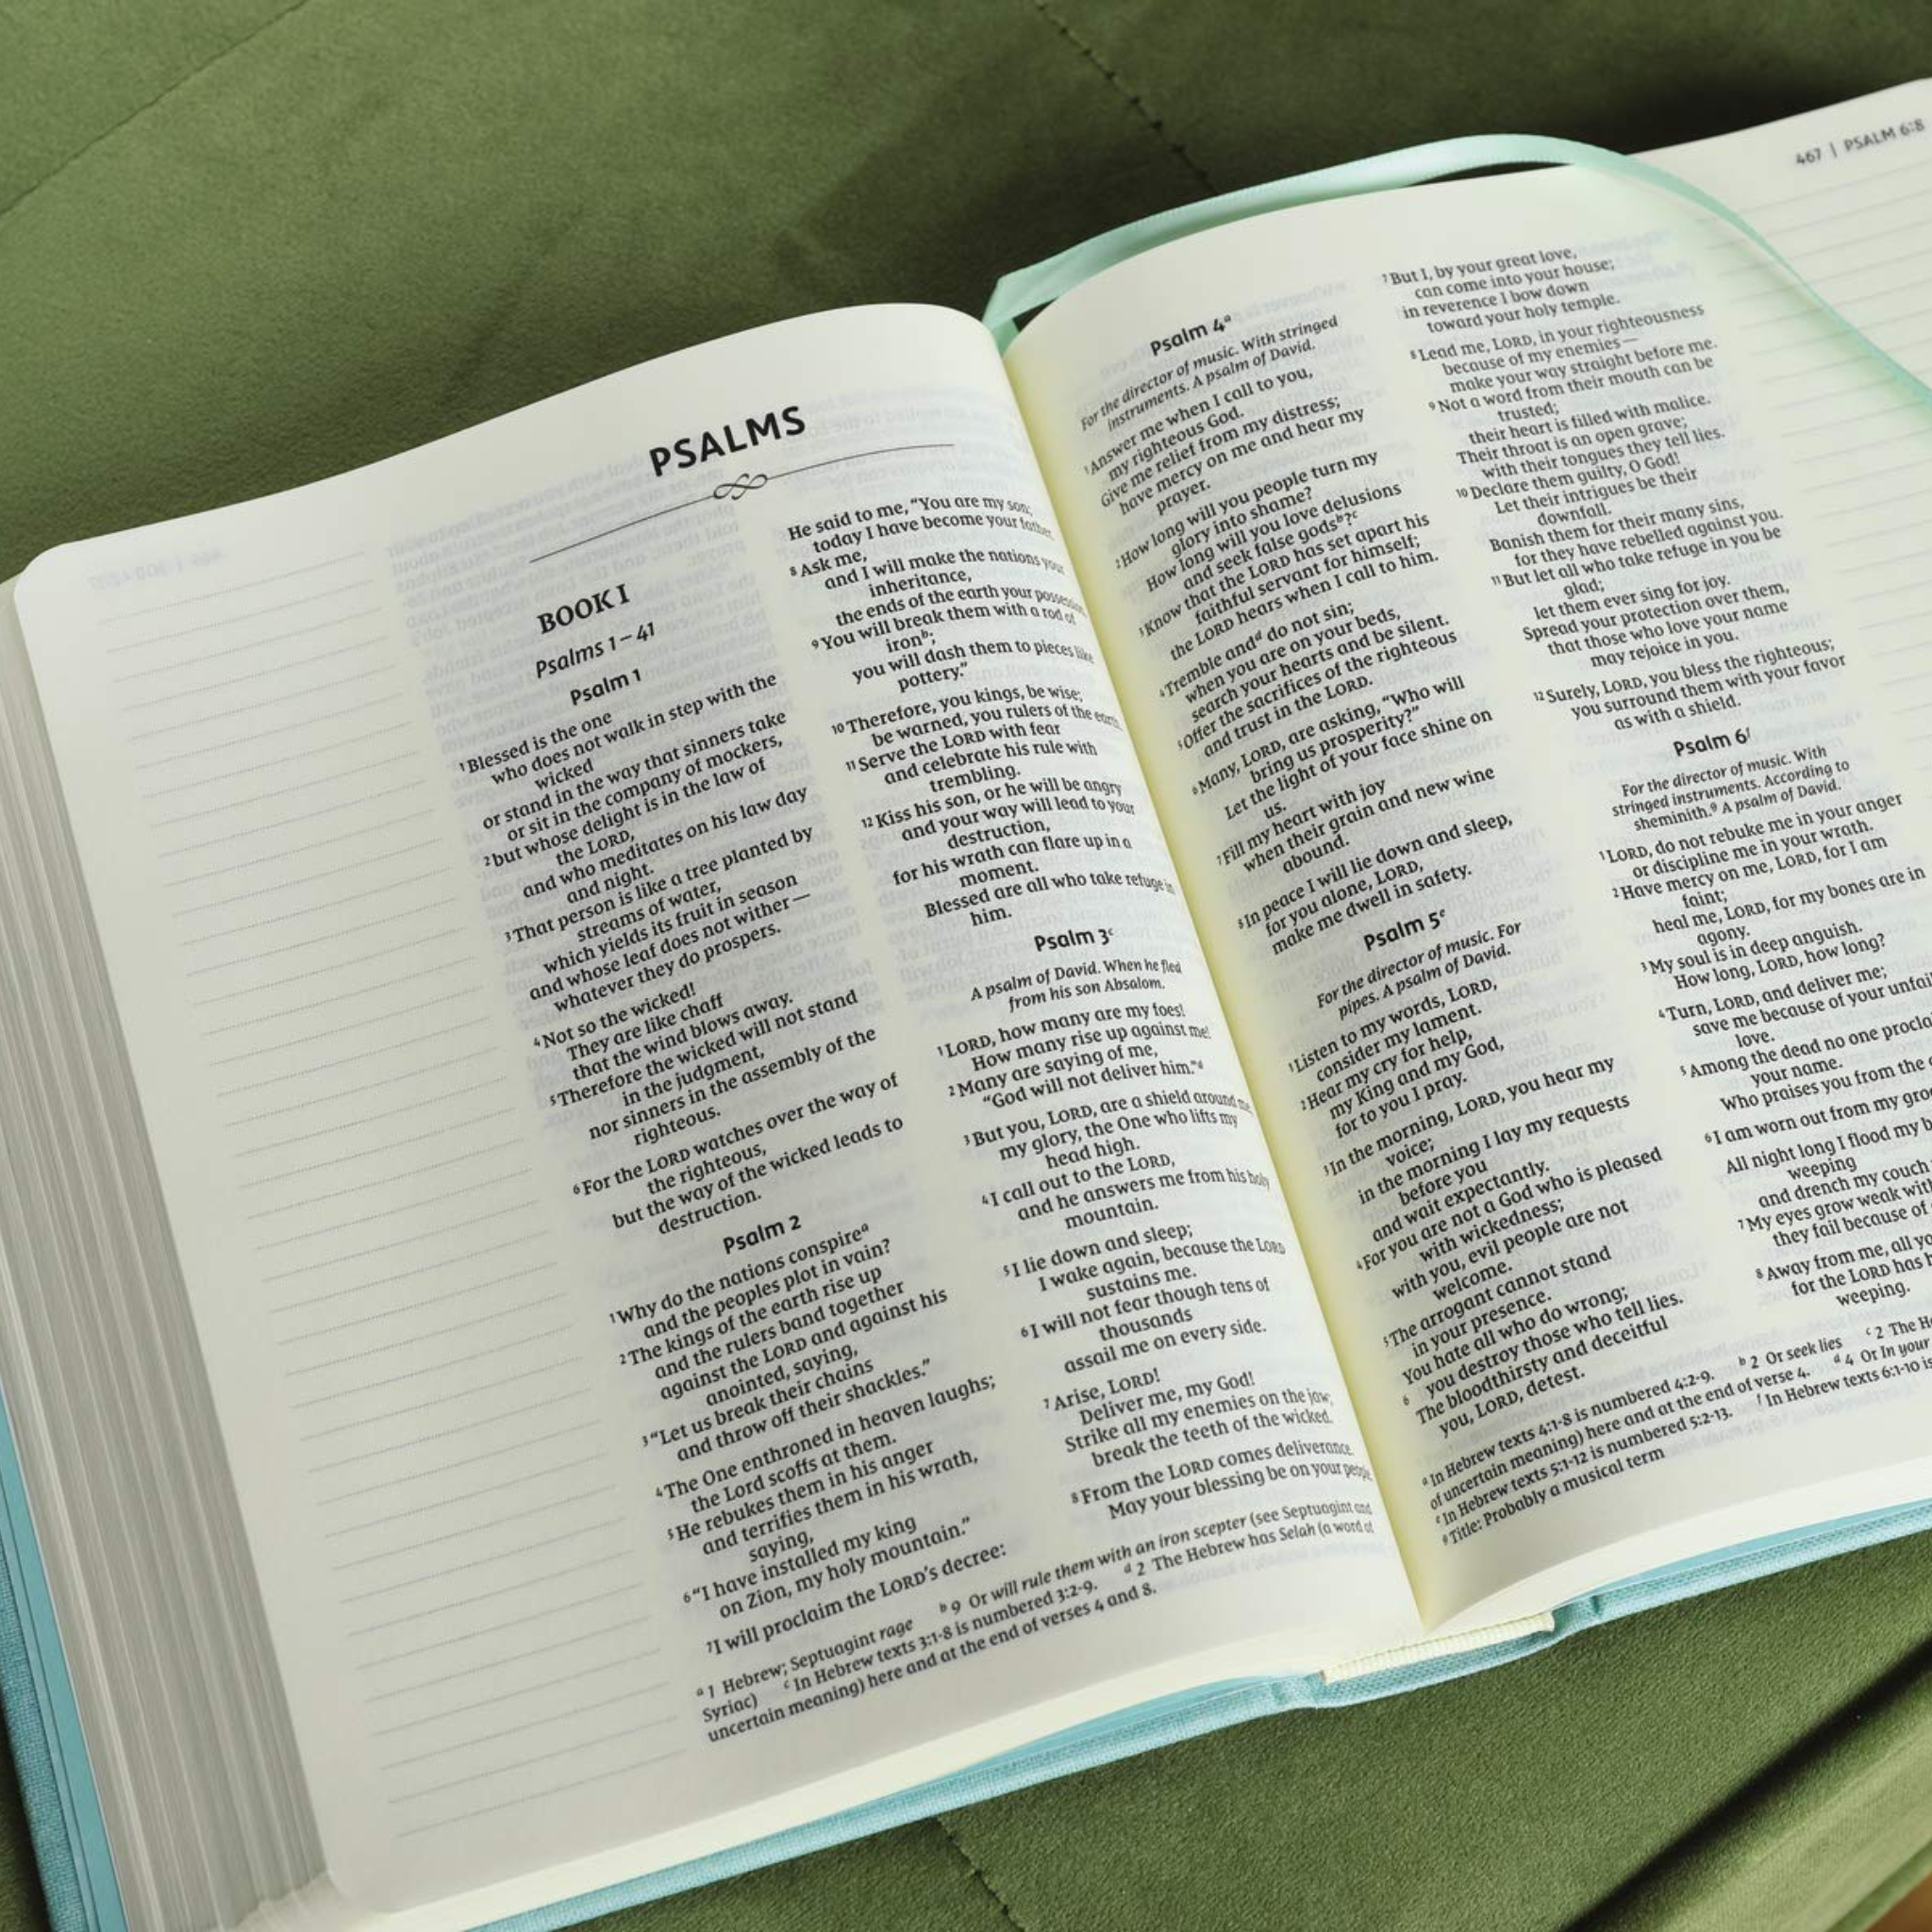 PSALMS
BOOK I
Psalms 1–41
Psalm 1
1 Blessed is the one
who does not walk in step with the
wicked
or stand in the way that sinners take
or sit in the company of mockers,
2 but whose delight is in the law of
the LORD,
and who meditates on his law day
and night.
3 That person is like a tree planted by
streams of water,
which yields its fruit in season
and whose leaf does not wither—
whatever they do prospers.
4 Not so the wicked!
They are like chaff
that the wind blows away.
5 Therefore the wicked will not stand
in the judgment,
nor sinners in the assembly of the
righteous.
6 For the LORD watches over the way of
the righteous,
but the way of the wicked leads to
destruction.
Psalm 2
1 Why do the nations conspire a
and the peoples plot in vain?
2 The kings of the earth rise up
and the rulers band together
against the LORD and against his
anointed, saying,
3 “Let us break their chains
and throw off their shackles.”
4 The One enthroned in heaven laughs;
the Lord scoffs at them.
5 He rebukes them in his anger
and terrifies them in his wrath,
saying,
6 “I have installed my king
on Zion, my holy mountain.”
7 I will proclaim the LORD’s decree:
He said to me, “You are my son;
today I have become your father.
8 Ask me,
and I will make the nations your
inheritance,
the ends of the earth your
9 You will break them with a rod of
iron b;
you will dash them to pieces like
pottery.”
10 Therefore, you kings, be wise;
be warned, you rulers of the earth.
11 Serve the LORD with fear
and celebrate his rule with
trembling.
12 Kiss his son, or he will be angry
and your way will lead to your
destruction,
for his wrath can flare up in a
moment.
Blessed are all who take refuge in
him.
Psalm 3 c
A psalm of David. When he fled
from his son Absalom.
1 LORD, how many are my foes!
How many rise up against me!
2 Many are saying of me,
“God will not deliver him.” d
3 But you, LORD, are a shield around me,
my glory, the One who lifts my
head high.
4 I call out to the LORD,
and he answers me from his holy
mountain.
5 I lie down and sleep;
I wake again, because the LORD
sustains me.
6 I will not fear though tens of
thousands
assail me on every side.
7 Arise, LORD!
Deliver me, my God!
Strike all my enemies on the jaw;
break the teeth of the wicked.
8 From the LORD comes deliverance.
May your blessing be on your people.
a 1 Hebrew; Septuagint rage b 9 Or will rule them with an iron scepter (see Septuagint and
Syriac) c In Hebrew texts 3:1-8 is numbered 3:2-9. d 2 The Hebrew has Selah (a word of
uncertain meaning) here and at the end of verses 4 and 8.
467 | PSALM 6:8
Psalm 4 a
For the director of music. With stringed
instruments. A psalm of David.
1 Answer me when I call to you,
my righteous God.
Give me relief from my distress;
have mercy on me and hear my
prayer.
2 How long will you people turn my
glory into shame?
How long will you love delusions
and seek false gods b? c
3 Know that the LORD has set apart his
faithful servant for himself;
the LORD hears when I call to him.
4 Tremble and d do not sin;
when you are on your beds,
search your hearts and be silent.
5 Offer the sacrifices of the righteous
and trust in the LORD.
6 Many, LORD, are asking, “Who will
bring us prosperity?”
Let the light of your face shine on
us.
7 Fill my heart with joy
when their grain and new wine
abound.
8 In peace I will lie down and sleep,
for you alone, LORD,
make me dwell in safety.
Psalm 5 e
For the director of music. For
pipes. A psalm of David.
1 Listen to my words, LORD,
consider my lament.
2 Hear my cry for help,
my King and my God,
for to you I pray.
3 In the morning, LORD, you hear my
voice;
in the morning I lay my requests
before you
and wait expectantly.
4 For you are not a God who is pleased
with wickedness;
with you, evil people are not
welcome.
5 The arrogant cannot stand
in your presence.
You hate all who do wrong;
6 you destroy those who tell lies.
The bloodthirsty and deceitful
you, LORD, detest.
7 But I, by your great love,
can come into your house;
in reverence I bow down
toward your holy temple.
8 Lead me, LORD, in your righteousness
because of my enemies—
make your way straight before me.
9 Not a word from their mouth can be
trusted;
their heart is filled with malice.
Their throat is an open grave;
with their tongues they tell lies.
10 Declare them guilty, O God!
Let their intrigues be their
downfall.
Banish them for their many sins,
for they have rebelled against you.
11 But let all who take refuge in you be
glad;
let them ever sing for joy.
Spread your protection over them,
that those who love your name
may rejoice in you.
12 Surely, LORD, you bless the righteous;
you surround them with your favor
as with a shield.
Psalm 6 f
For the director of music. With
stringed instruments. According to
sheminith. g A psalm of David.
1 LORD, do not rebuke me in your anger
or discipline me in your wrath.
2 Have mercy on me, LORD, for I am
faint;
heal me, LORD, for my bones are in
agony.
3 My soul is in deep anguish.
How long, LORD, how long?
4 Turn, LORD, and deliver me;
save me because of your
love.
5 Among the dead no one
your name.
Who praises you from the
6 I am worn out from my
All night long I flood my
weeping
and drench my couch
7 My eyes grow weak
they fail because of
8 Away from me, all
for the LORD has
weeping.
a In Hebrew texts 4:1-8 is numbered 4:2-9. b 2 Or seek lies c 2 The
of uncertain meaning) here and at the end of verse 4. d 4 Or In your
e In Hebrew texts 5:1-12 is numbered 5:2-13. f In Hebrew texts 6:1-10
g Title: Probably a musical term